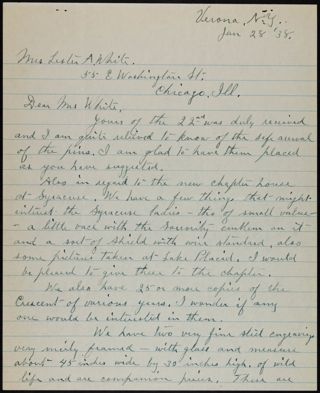 Verona, N.Y.
Jan 28 '38.
Mrs Lester A White.
55 E Washington St.
Chicago, Ill.
Dear Mrs White.
Yours of the 22nd was duly received
and I am quite relieved to know of the safe arrival
of the pins. I am glad to have them placed
as you have suggested.
Also in regard to the new chapter house
at Syracuse. We have a few things that might
interest the Syracuse ladies - tho of small value -
- a little vase with the Sorority emblem on it -
and a sort of shield with wire standard, also
some pictures taken at Lake Placid. I would
be pleased to give these to the chapter.
We also have 25 or more copies of the
Crescent of various years. I wonder if any
one would be interested in them.
We have two very fine steel engravings
very nicely framed - with glass and measure
about 45 inches wide by 30 inches high, of wild
life and are companion pieces. These are